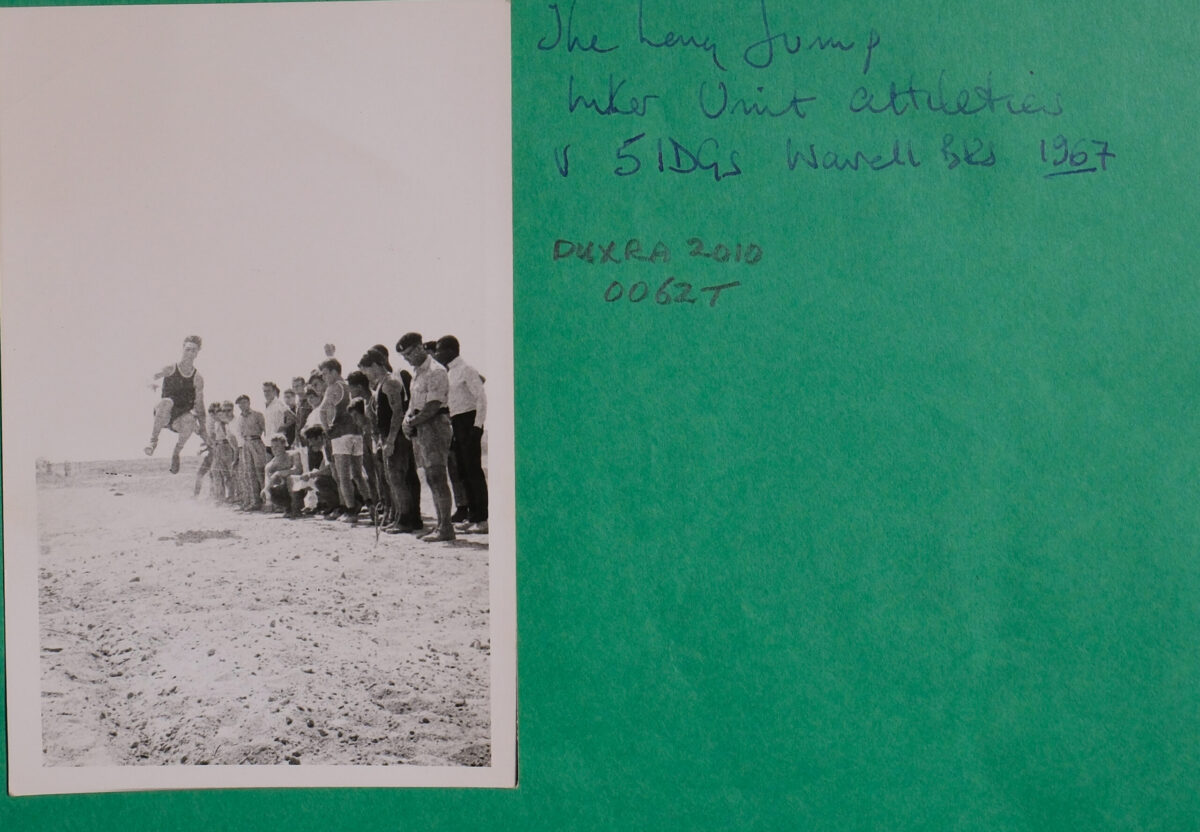 The Long Jump
Inter Unit athletics
v 5 IDGs Wavell BKs 1967
DUXRA 2010
0062T